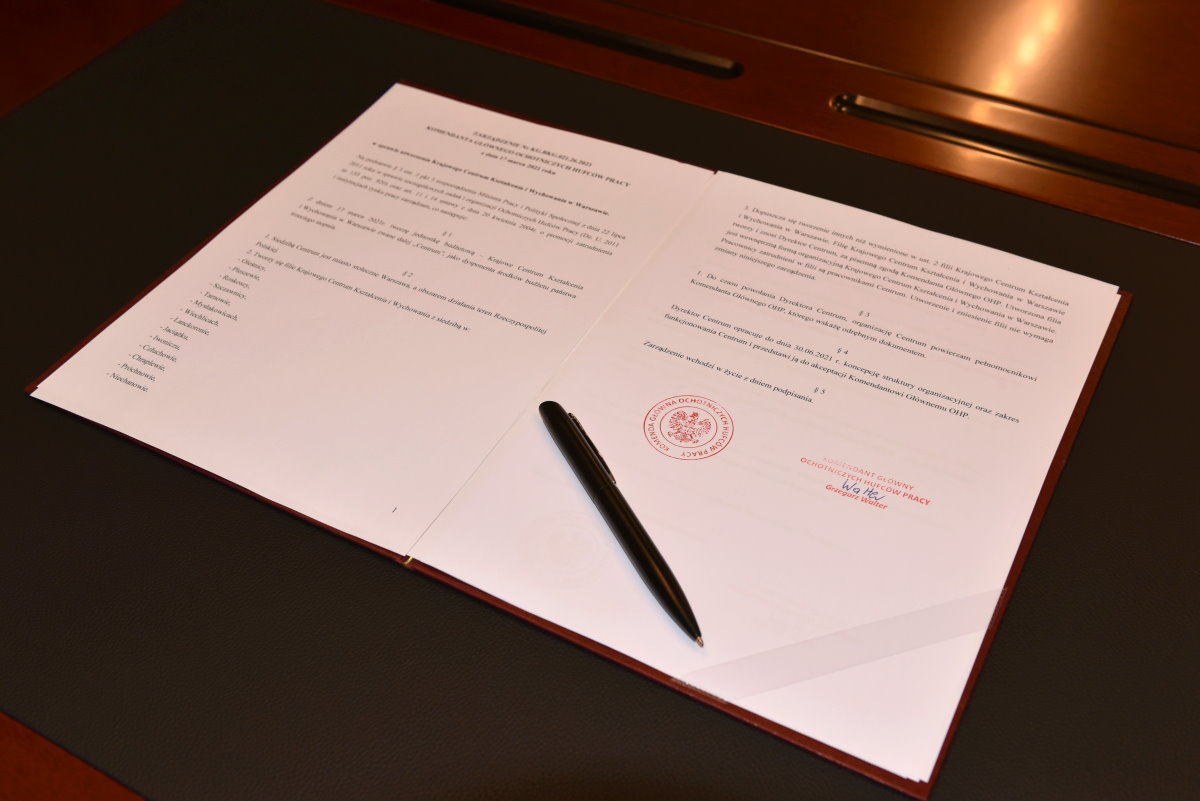 ZARZĄDZENIE Nr KG.BKG.021.26.2021
KOMENDANTA GŁÓWNEGO OCHOTNICZYCH HUFCÓW PRACY
z dnia 17 marca 2021 roku
w sprawie utworzenia Krajowego Centrum Kształcenia i Wychowania w Warszawie.
Na podstawie § 3 ust. 1 pkt 5 rozporządzenia Ministra Pracy i Polityki Społecznej z dnia 22 lipca
2011 roku w sprawie szczegółowych zadań i organizacji Ochotniczych Hufców Pracy (Dz. U. 2011
nr 155 poz. 920) oraz art. 11 i 14 ustawy z dnia 20 kwietnia 2004r. o promocji zatrudnienia
i instytucjach rynku pracy zarządzam, co następuje:
§ 1
Z dniem 17 marca 2021r. tworzę jednostkę budżetową – Krajowe Centrum Kształcenia
i Wychowania w Warszawie zwane dalej „Centrum", jako dysponenta środków budżetu państwa
trzeciego stopnia.
§ 2
1. Siedzibą Centrum jest miasto stołeczne Warszawa, a obszarem działania teren Rzeczypospolitej
Polskiej.
2. Tworzy się filie Krajowego Centrum Kształcenia i Wychowania z siedzibą w:
- Oleśnicy,
- Pleszewie,
- Roskoszy,
- Szczawnicy,
- Tarnowie,
- Mysłakowicach,
- Wiechlicach,
- Lanckoronie,
- Jaciążku,
- Iwoniczu,
- Gołuchowie,
- Chraplewie,
- Próchnowie,
- Niechanowie.
1
3. Dopuszcza się tworzenie innych niż wymienione w ust. 2 filii Krajowego Centrum Kształcenia
i Wychowania w Warszawie. Filię Krajowego Centrum Kształcenia i Wychowania w Warszawie
tworzy i znosi Dyrektor Centrum, za pisemną zgodą Komendanta Głównego OHP. Utworzona filia
jest wewnętrzną formą organizacyjną Krajowego Centrum Kształcenia i Wychowania w Warszawie.
Pracownicy zatrudnieni w filii są pracownikami Centrum. Utworzenie i zniesienie filii nie wymaga
zmiany niniejszego zarządzenia.
§ 3
1. Do czasu powołania Dyrektora Centrum, organizację Centrum powierzam pełnomocnikowi
Komendanta Głównego OHP, którego wskażę odrębnym dokumentem.
§ 4
Dyrektor Centrum opracuje do dnia 30.06.2021 r. koncepcję struktury organizacyjnej oraz zakres
funkcjonowania Centrum i przedstawi ją do akceptacji Komendantowi Głównemu OHP.
§ 5
Zarządzenie wchodzi w życie z dniem podpisania.
KOMENDA GŁÓWNA OCHOTNICZYCH HUFCÓW PRACY
KOMENDANT GŁÓWNY
OCHOTNICZYCH HUFCÓW PRACY
Walter
Grzegorz Walter